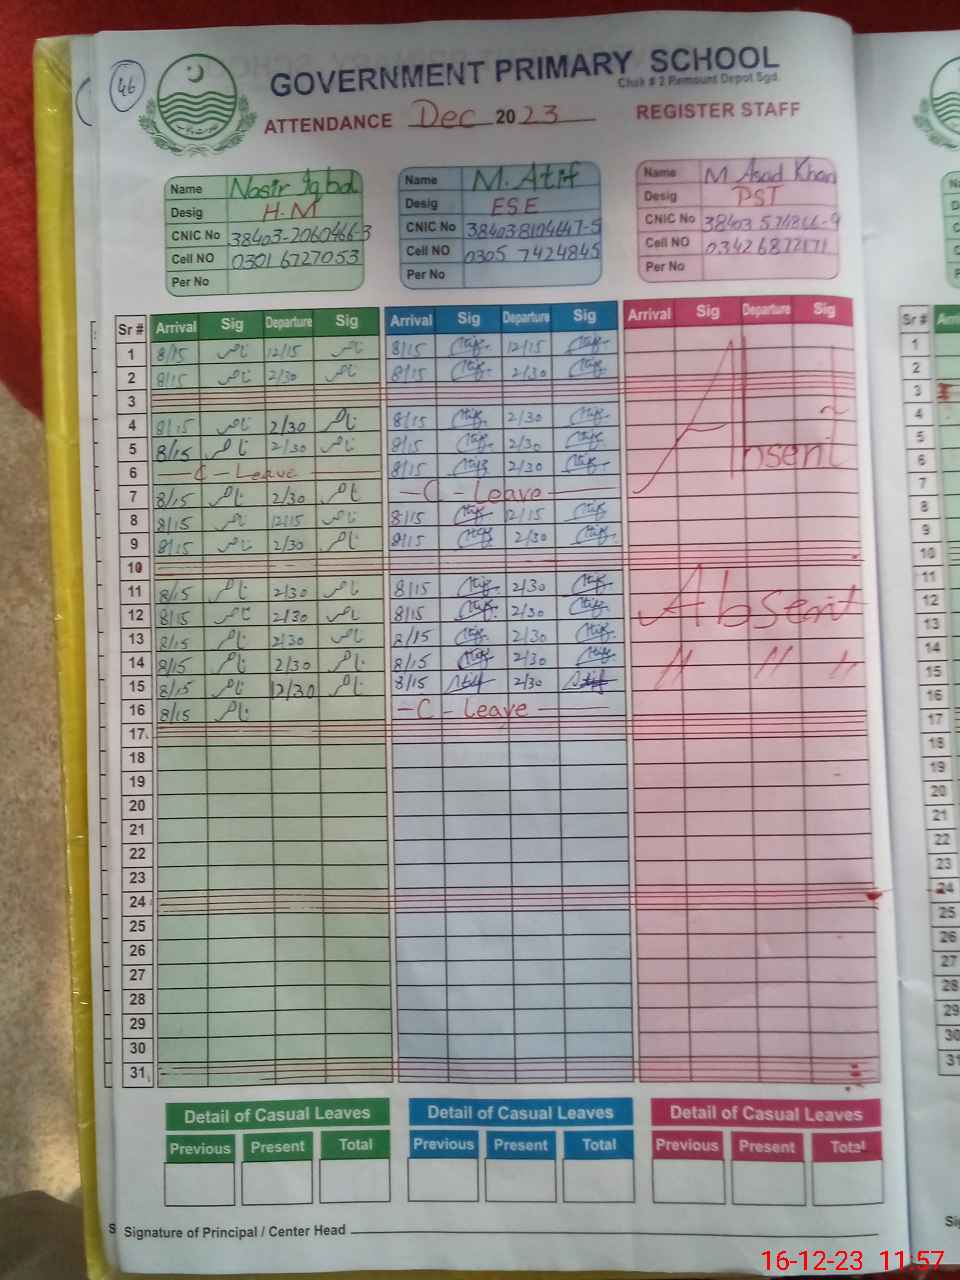 46
GOVERNMENT PRIMARY SCHOOL
Chak # 2 Remount Depot Sgd.
ATTENDANCE Dec 2023 REGISTER STAFF
Name Nasir Iqbal
Desig H.M
CNIC No 38403-2060466-3
Cell NO 0301 6727053
Per No
Name M. Atif
Desig ESE
CNIC No 384038104647-5
Cell NO 0305 7424845
Per No
Name M Asad Khan
Desig PST
CNIC No 38403 574866-9
Cell NO 03426872171
Per No
Sr # Arrival Sig Departure Sig Arrival Sig Departure Sig Arrival Sig Departure Sig
1 8/15 ناصر 12/15 ناصر 8/15 Atif 12/15 Atif
2 8/15 ناصر 2/30 ناصر 8/15 Atif 2/30 Atif
3
4 8/15 ناصر 2/30 ناصر 8/15 Atif 2/30 Atif
5 8/15 ناصر 2/30 ناصر 8/15 Atif 2/30 Atif Absent
6 C - Leave 8/15 Atif 2/30 Atif
7 8/15 ناصر 2/30 ناصر - C - Leave
8 8/15 ناصر 12/15 ناصر 8/15 Atif 12/15 Atif
9 8/15 ناصر 2/30 ناصر 8/15 Atif 2/30 Atif
10
11 8/15 ناصر 2/30 ناصر 8/15 Atif 2/30 Atif
12 8/15 ناصر 2/30 ناصر 8/15 Atif 2/30 Atif Absent
13 8/15 ناصر 2/30 ناصر 8/15 Atif 2/30 Atif
14 8/15 ناصر 2/30 ناصر 8/15 Atif 2/30 Atif " " "
15 8/15 ناصر 12/30 ناصر 8/15 Atif 2/30 Atif
16 8/15 ناصر - C - Leave
17
18
19
20
21
22
23
24
25
26
27
28
29
30
31
Detail of Casual Leaves Detail of Casual Leaves Detail of Casual Leaves
Previous Present Total Previous Present Total Previous Present Total
Signature of Principal / Center Head
Sr #
1
2
3
4
5
6
7
8
9
10
11
12
13
14
15
16
17
18
19
20
21
22
23
24
25
26
27
28
29
30
31
16-12-23 11:57